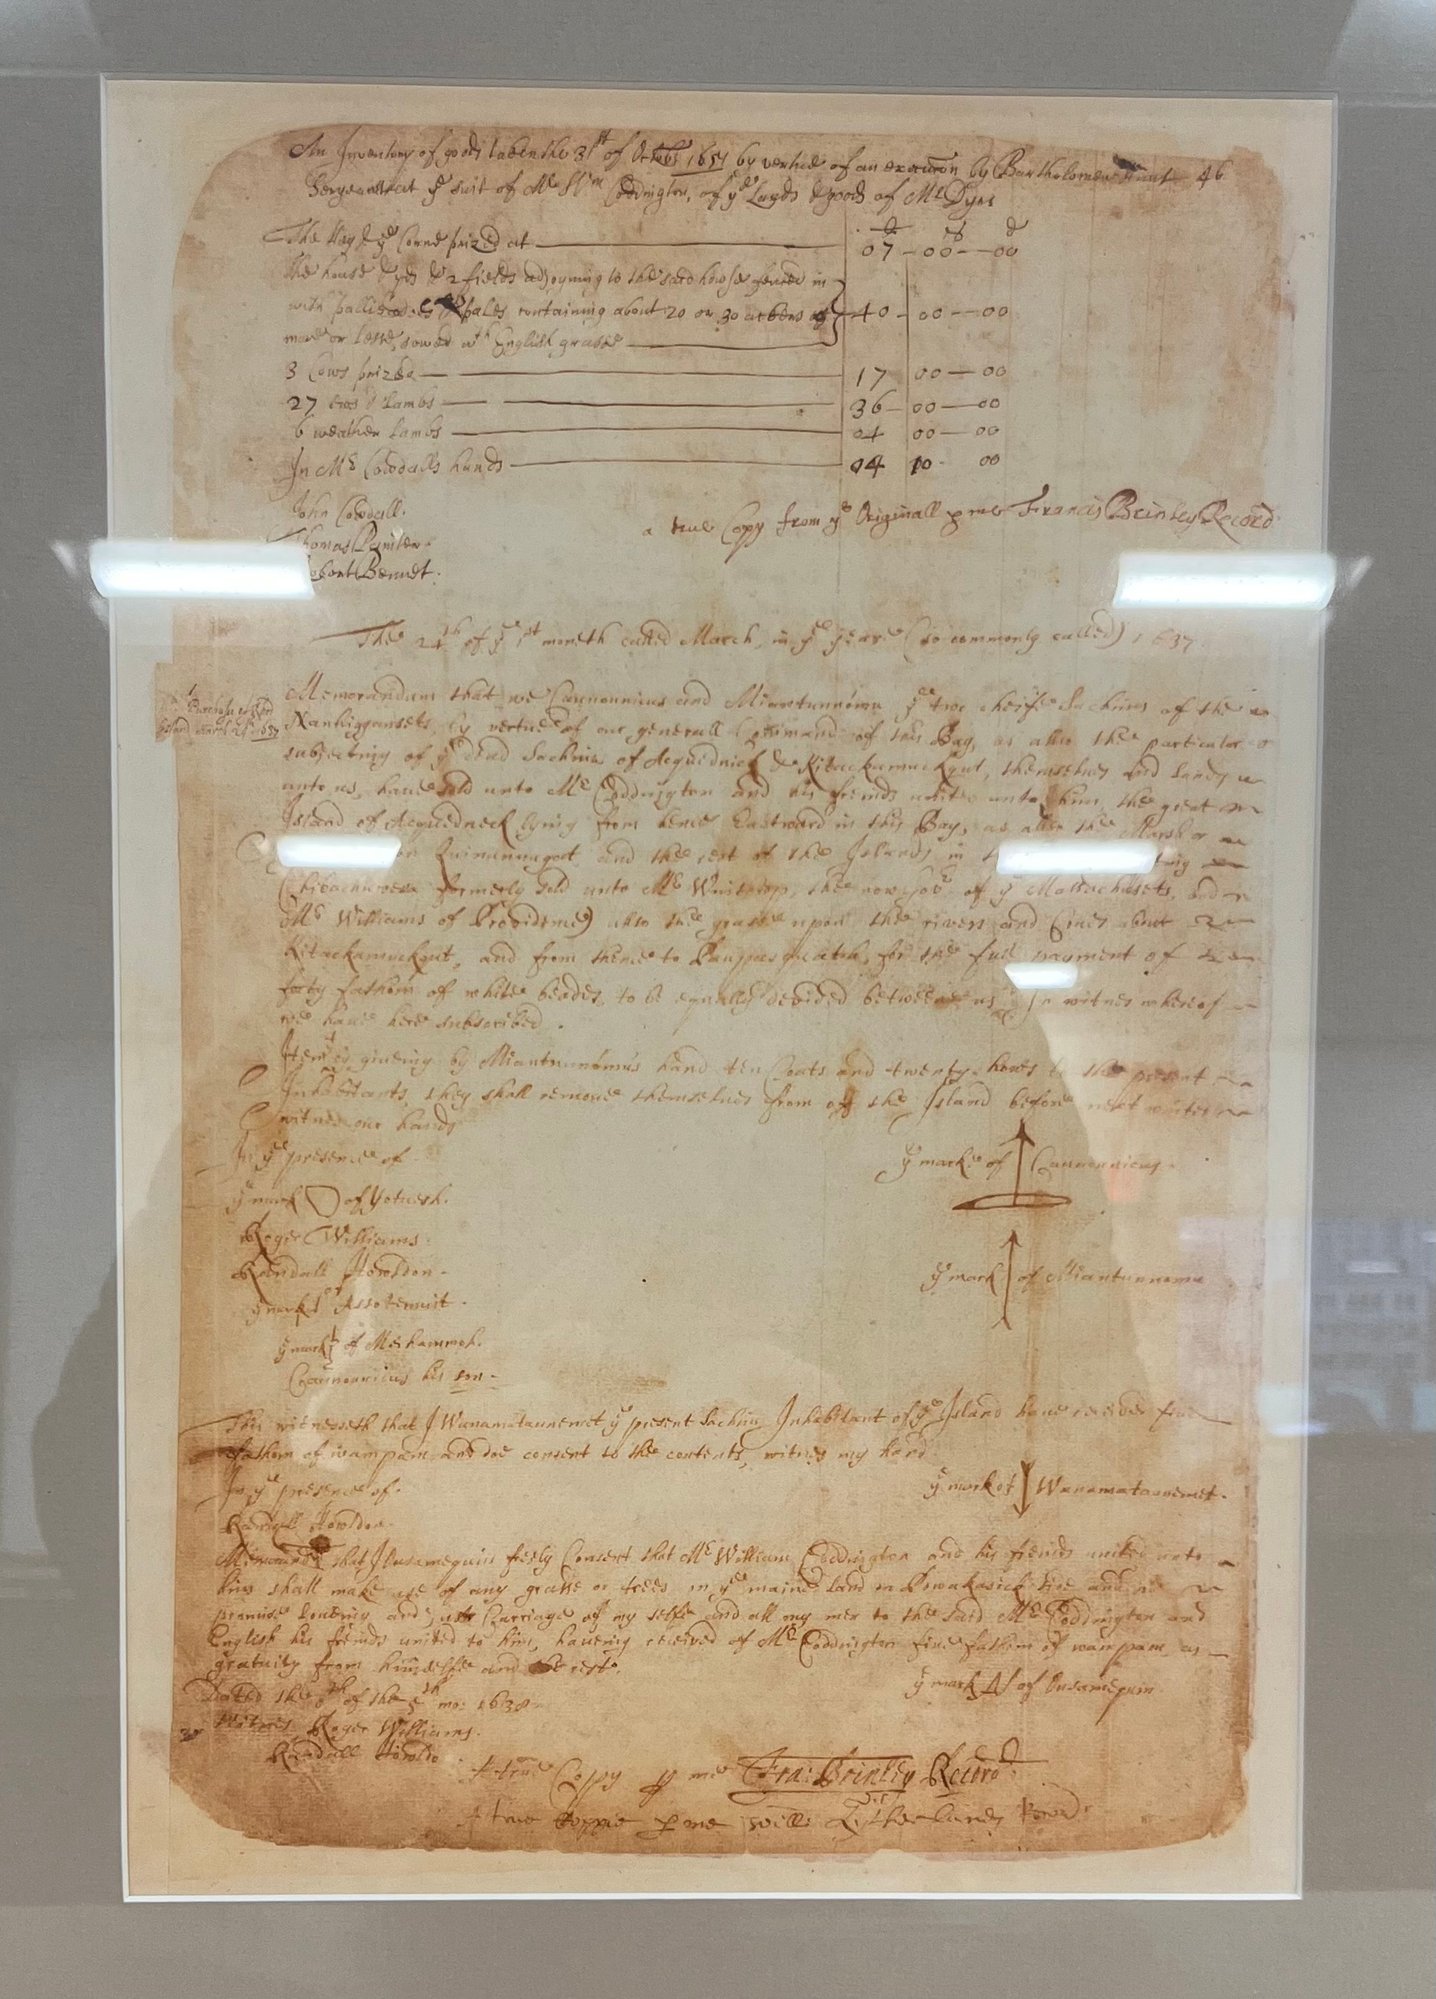 An Inventory of goods taken the 31st of Octobr 1657 by vertue of an execution by Bartholomew Hunt 46
Sergeant at ye suit of Mr Wm Coddington, of ye Lands & goods of Mr Dyre
The Hay & ye Corne prized at 07-00-00
The house & yds & 2 fields adjoyning to the said howse fenced in
with pallisadoes & pales containing about 20 or 30 ackers 40-00-00
more or lesse, sowed wth English grasse
3 Cows prized 17 00-00
27 ews & Lambs 36-00-00
6 weather Lambs 04 00-00
In Mr Cowdalls hands 04 10-00
John Cowdall.
a true Copy from ye Originall p me Francis Brinley Record
Thomas Painter.
Robert Bennet.
The 24th of ye 1st moneth called March, in ye yeare (so commonly called) 1637
Purchase of Rhod
Island March 24th 1637
Memorandum that we Caunounicus and Miantunnomu ye two cheife Sachims of the
Nanhiggansets, by vertue of our generall Command of this Bay, as allso the particular
subjecting of ye dead Sachims of Acquednick & Kitackamuckqut, themselves and lands
unto us, have sold unto Mr Coddington and his freinds united unto him, the great
Island of Acquedneck lying from hence Eastward in this Bay, as allso the Marsh or
Quinunnagat, and the rest of the Islands in
Chibachuwesa formerly sold unto Mr Winthrop, the now Govr of ye Massachusets, and
Mr Williams of Providence) also the grasse upon the rivers and Coves about
Kitackamuckqut, and from thence to Paupasquatch, for the full payment of
forty fathom of white beades, to be equally devided betweene us. In witnes whereof
we have here subscribed.
Item yt giveing by Miantunnomus hand ten Coats and twenty hows to the present
Inhabitants, they shall remove themselves from off the Island before next winter
witnes our hands
In ye presence of.
ye marke of Caunounicus.
ye mark of Yotnesh.
Roger Williams.
Randall Howldon.
ye mark of Miantunnomu
ye mark of Assotemuit.
ye mark of Meshammoh.
Caunounicus his son.
This witnesseth that I Wanamataunemet ye present Sachim Inhabitant of ye Island have received five
fathom of wampam and doe consent to the contents, witnes my hand
In ye presence of.
ye mark of Wanamataunemet.
Randall Howldon.
Memorand that I Ousamequin freely Consent that Mr William Coddington and his freinds united unto
him shall make use of any grasse or trees on ye maine Land on Powakasick side and
promise loveing and just Carriage of my selfe and all my men to the said Mr Coddington and
English his freinds united to him, haveing received of Mr Coddington five fathom of wampam as
gratuity from himselfe and the rest.
ye mark of Ousamequin.
Dated the 6th of the 5th mo: 1638.
Witnes Roger Williams.
Randall Howldo
A true Coppy p me Fra: Brinley Record
A true Coppie p me Will: Lytherland Recordr